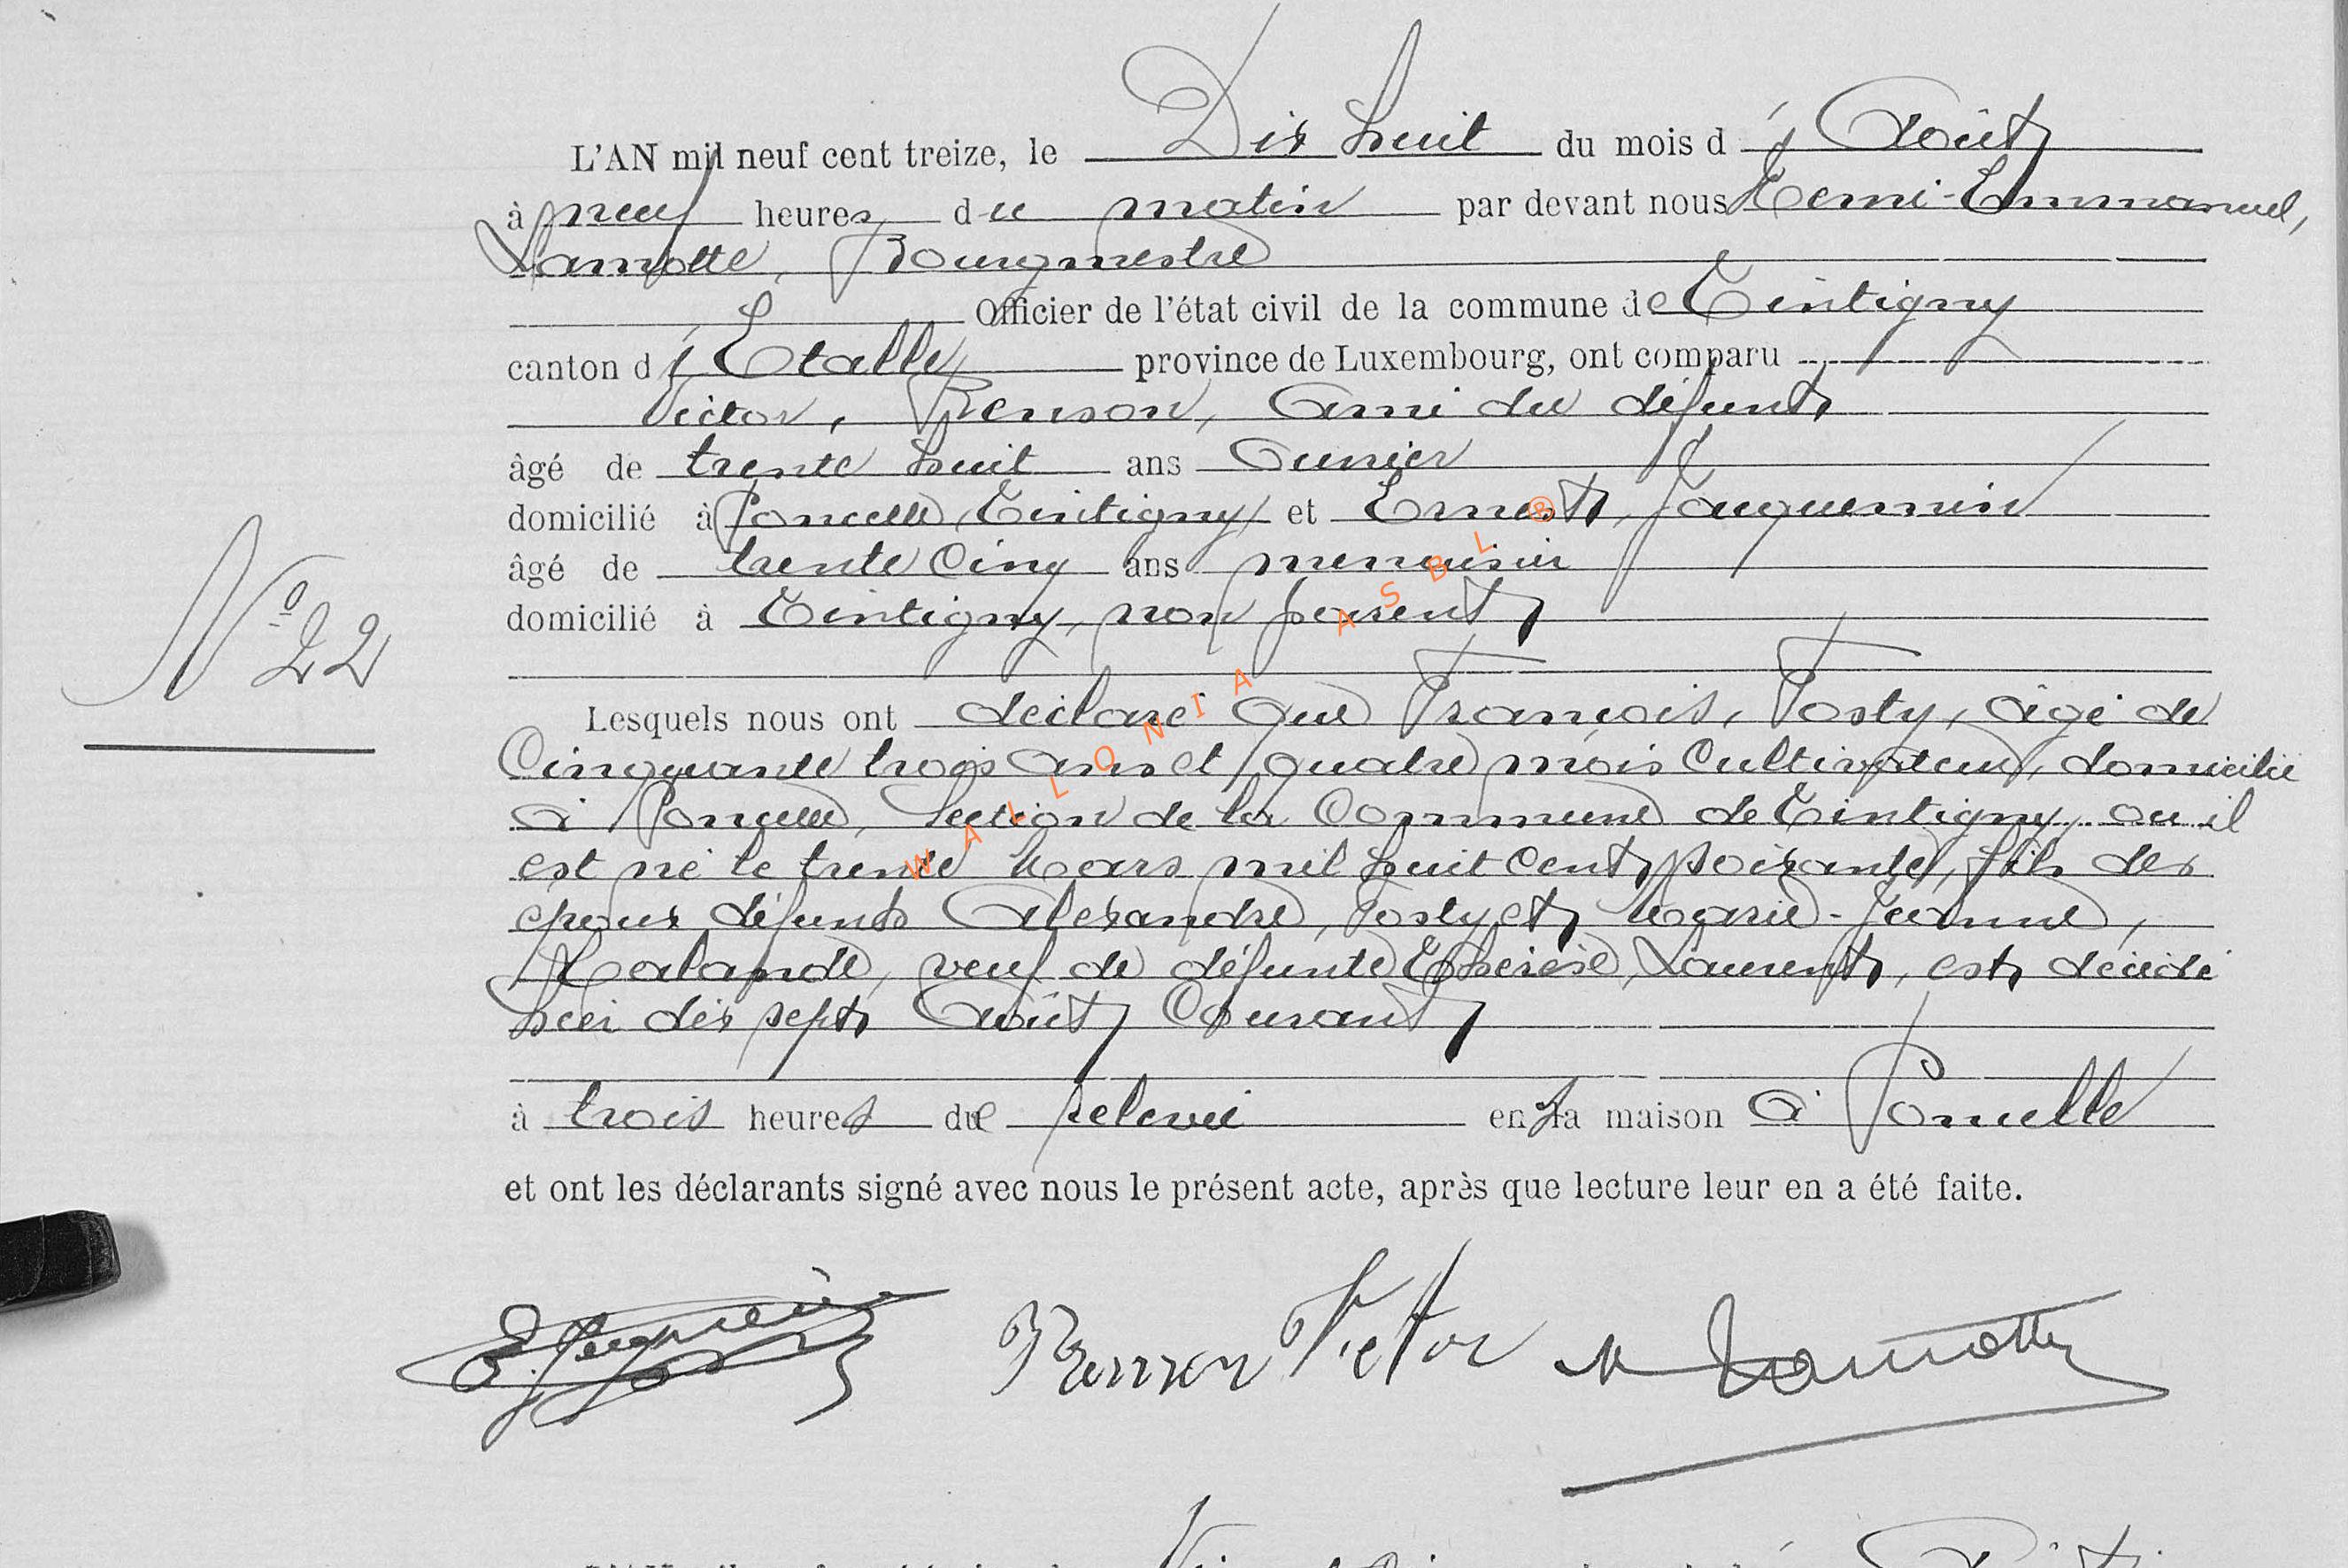 L'AN mil neuf cent treize, le Dix huit du mois d' Août
à neuf heures du matin par devant nous Remi-Emmanuel,
Lamotte, Bourgmestre
Officier de l'état civil de la commune de Tintigny
canton d' Etalle province de Luxembourg, ont comparu
Victor, Renson, Ami du défunt
âgé de trente huit ans Ounier
domicilié à Poncelle, Tintigny et Ernest, Jacquemin
âgé de trente cinq ans menuisier
domicilié à Tintigny, non parent
N° 22
Lesquels nous ont déclaré que François, Tosty, âgé de
Cinquante trois ans et quatre mois Cultivateur, domicilié
à Poncelle, Section de la Commune de Tintigny, ou il
est né le trente Mars mil huit Cent soixante, fils des
époux défunts Alexandre, Tosty et Marie-Jeanne,
Lalande, veuf de défunte Thérèse, Laurent, est décédé
hier dix sept Août Courant
à trois heures de relevée en sa maison à Poncelle
et ont les déclarants signé avec nous le présent acte, après que lecture leur en a été faite.
E. Jacquemin Renson Victor Lamotte
WALLONIA ASBL ®